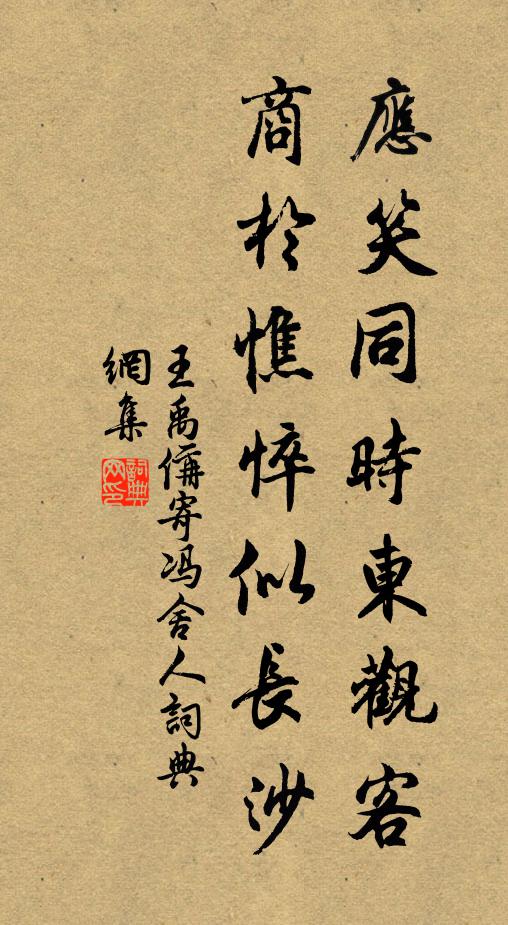 應笑同時東觀客
商於憔悴似長沙
王禹偁寄馮舍人詞典
網集
詞典
网印